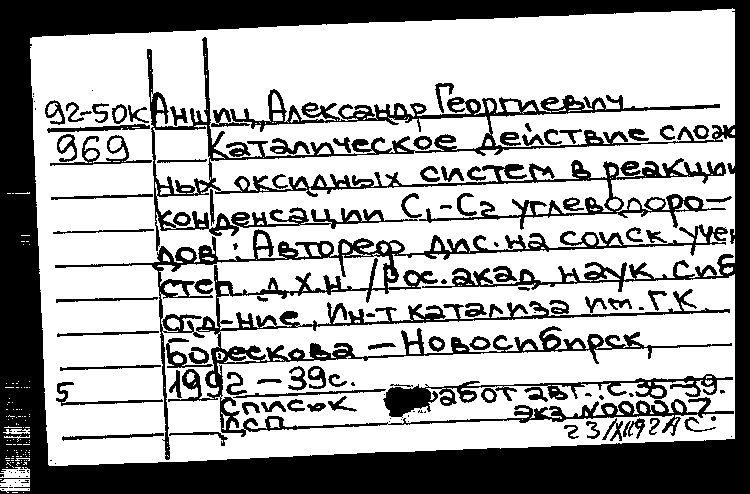 92-50к Аншиц, Александр Георгиевич.
969 Каталическое действие слож
ных оксидных систем в реакции
конденсации С1-С2 углеводоро-
дов : Автореф. дис. на соиск. учен
степ. д.х.н. /Рос. акад. наук. Сиб
отд-ние, Ин-т катализа им. Г.К.
Борескова. - Новосибирск,
5 1992 - 39с.
Список работ авт.: с.35-39.
ДСП Экз. N000007.
23/XII92 АС.